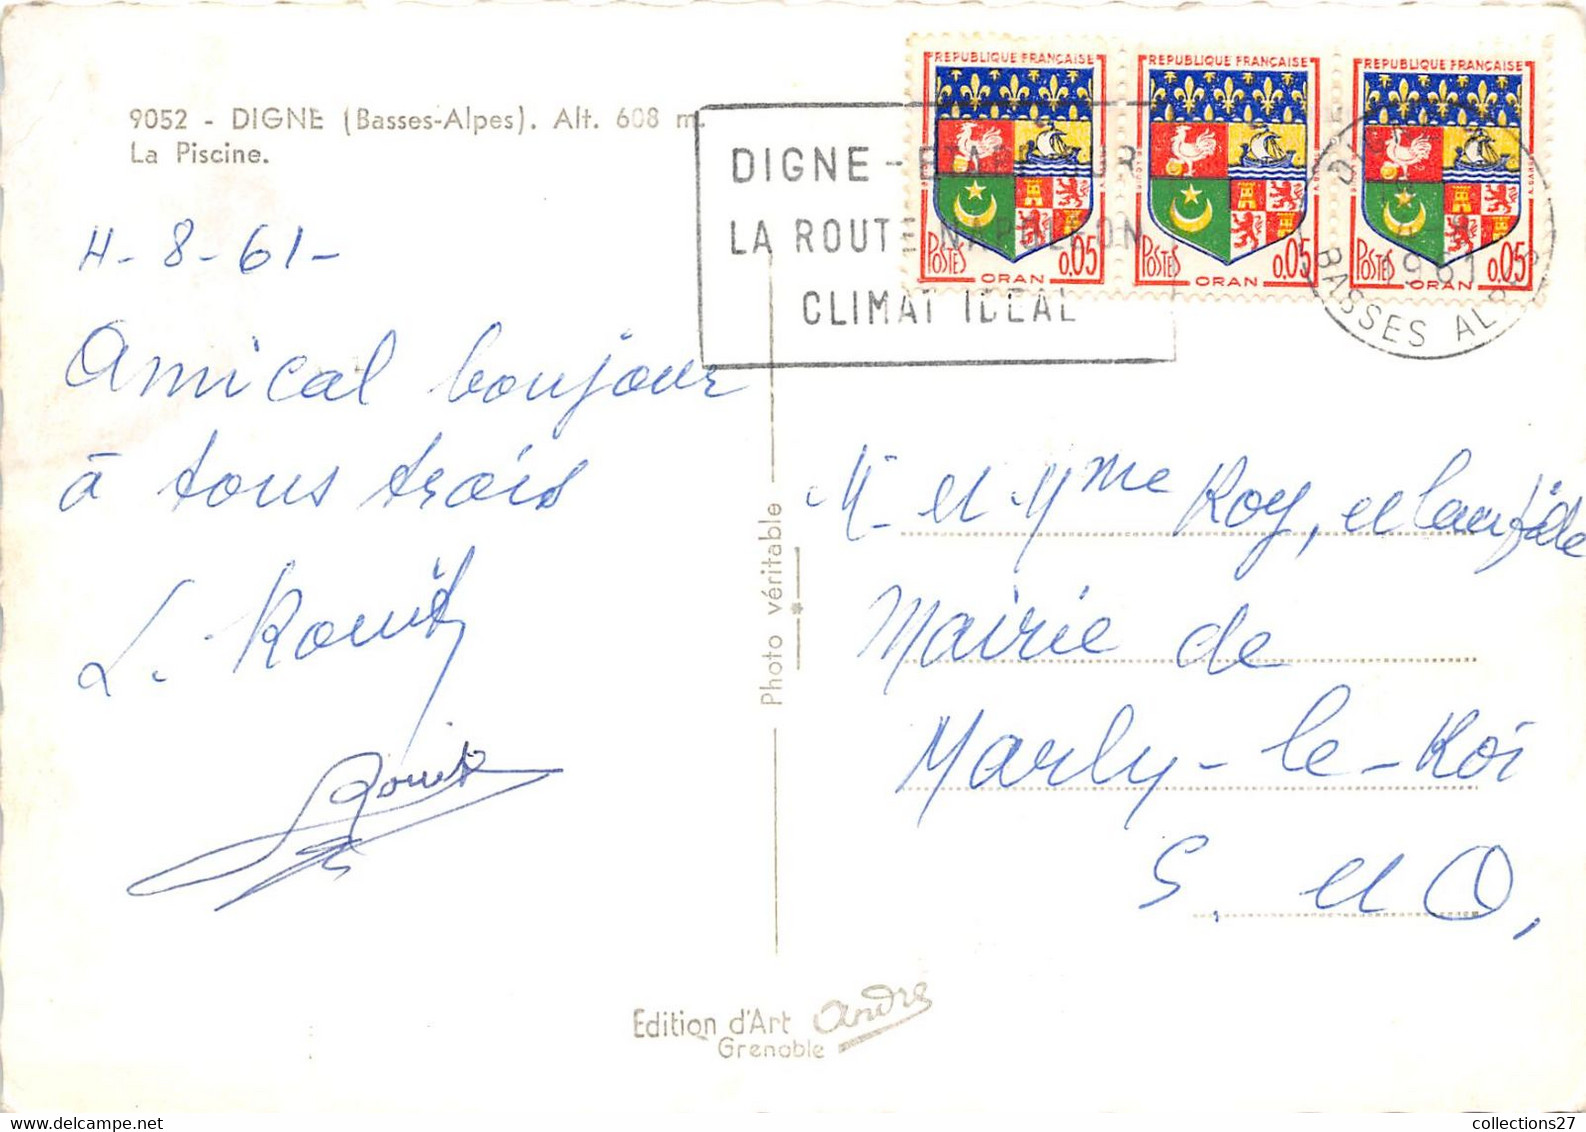 9052 - DIGNE (Basses-Alpes). Alt. 608 m.
La Piscine.
REPUBLIQUE FRANÇAISE
POSTES ORAN 0,05
REPUBLIQUE FRANÇAISE
POSTES ORAN 0,05
REPUBLIQUE FRANÇAISE
POSTES ORAN 0,05
DIGNE - ETAPE SUR
LA ROUTE NAPOLEON
CLIMAT IDEAL
1961
BASSES ALPES
4-8-61-
Amical bonjour
à tous trois
L.
Photo véritable
M. et Mme Roy, et
Mairie de
Marly-le-Roi
S. et O,
Edition d'Art André
Grenoble
collections27